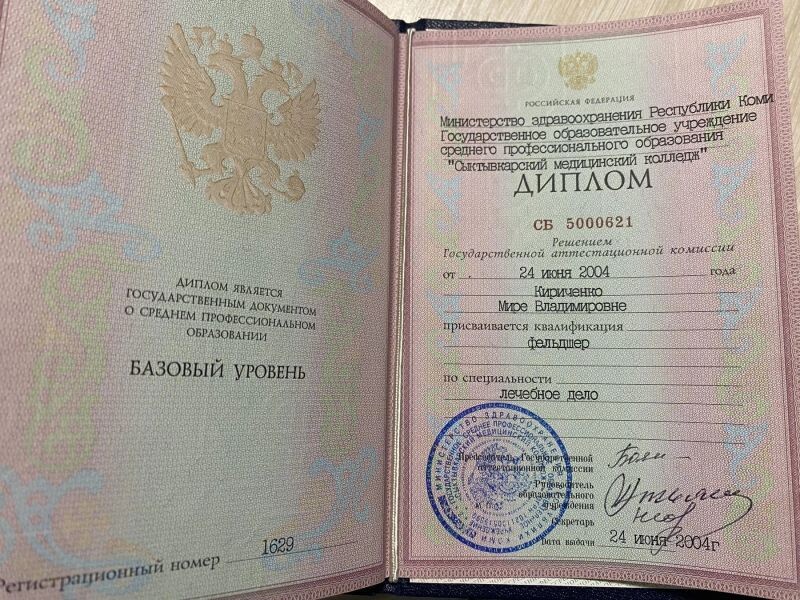 ДИПЛОМ ЯВЛЯЕТСЯ
ГОСУДАРСТВЕННЫМ ДОКУМЕНТОМ
О СРЕДНЕМ ПРОФЕССИОНАЛЬНОМ
ОБРАЗОВАНИИ
БАЗОВЫЙ УРОВЕНЬ
Регистрационный номер 1629
РОССИЙСКАЯ ФЕДЕРАЦИЯ
Министерство здравоохранения Республики Коми
Государственное образовательное учреждение
среднего профессионального образования
"Сыктывкарский медицинский колледж"
ДИПЛОМ
СБ 5000621
Решением
Государственной аттестационной комиссии
от 24 июня 2004 года
Кириченко
Мире Владимировне
присваивается квалификация
фельдшер
по специальности
лечебное дело
Председатель Государственной
аттестационной комиссии
Руководитель
образовательного
учреждения
Секретарь
Дата выдачи 24 июня 2004г